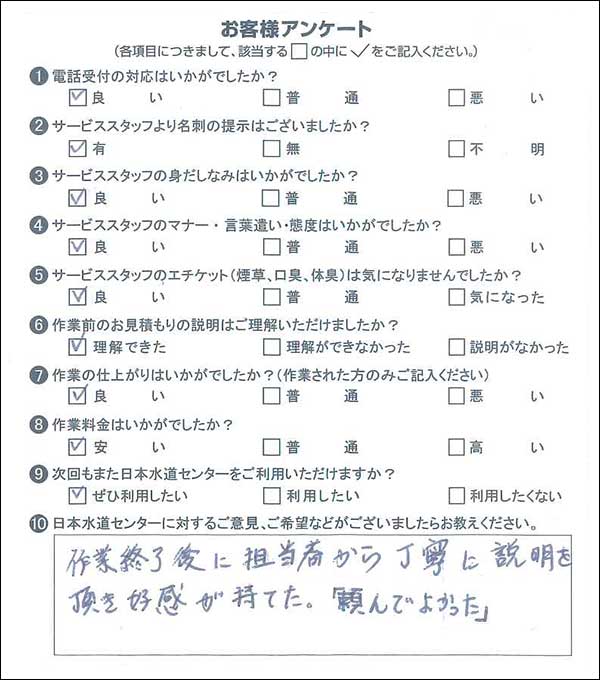 お客様アンケート
(各項目につきまして、該当する□の中に✓をご記入ください。)
❶ 電話受付の対応はいかがでしたか?
☑ 良い □ 普通 □ 悪い
❷ サービススタッフより名刺の提示はございましたか?
☑ 有 □ 無 □ 不明
❸ サービススタッフの身だしなみはいかがでしたか?
☑ 良い □ 普通 □ 悪い
❹ サービススタッフのマナー・言葉遣い・態度はいかがでしたか?
☑ 良い □ 普通 □ 悪い
❺ サービススタッフのエチケット(煙草、口臭、体臭)は気になりませんでしたか?
☑ 良い □ 普通 □ 気になった
❻ 作業前のお見積もりの説明はご理解いただけましたか?
☑ 理解できた □ 理解ができなかった □ 説明がなかった
❼ 作業の仕上がりはいかがでしたか?(作業された方のみご記入ください)
☑ 良い □ 普通 □ 悪い
❽ 作業料金はいかがでしたか?
☑ 安い □ 普通 □ 高い
❾ 次回もまた日本水道センターをご利用いただけますか?
☑ ぜひ利用したい □ 利用したい □ 利用したくない
❿ 日本水道センターに対するご意見、ご希望などがございましたらお教えください。
作業終了後に担当者から丁寧に説明を
頂き好感が持てた。「頼んでよかった」